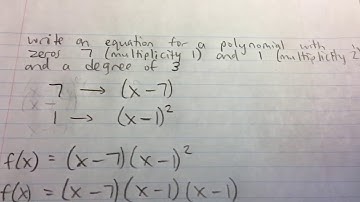 write an equation for a polynomial with
zeros 7 (multiplicity 1) and 1 (multiplicity 2
and a degree of 3
7 → (x-7)
1 → (x-1)²
f(x) = (x-7)(x-1)²
f(x) = (x-7)(x-1)(x-1)